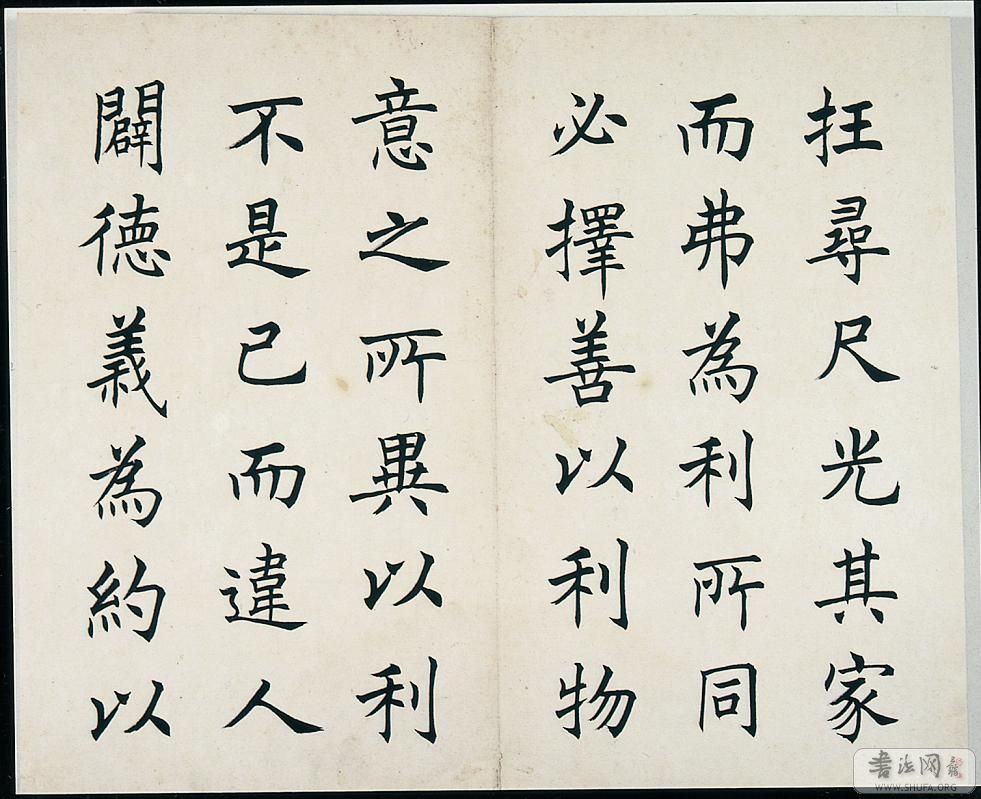 抂尋尺光其家
而弗為利所同
必擇善以利物
意之所異以利
不是己而違人
闢德義為約以
書法网
WWW.SHUFA.ORG